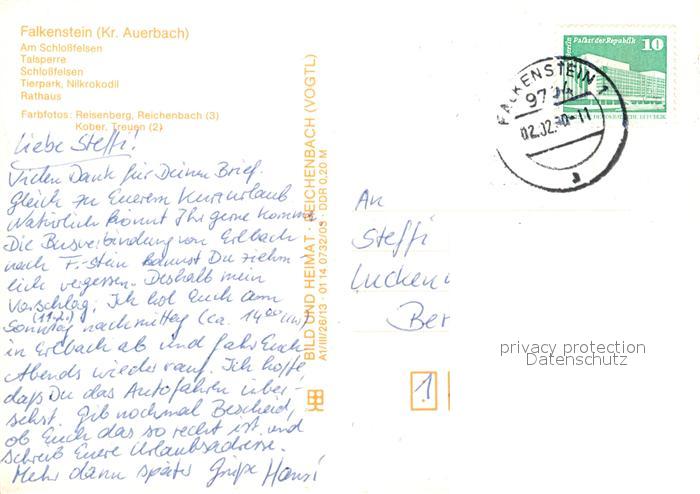 Falkenstein (Kr. Auerbach)
Am Schloßfelsen
Talsperre
Schloßfelsen
Tierpark, Nilkrokodil
Rathaus
Farbfotos: Reisenberg, Reichenbach (3)
Kober, Treuen (2)
Liebe Steffi!
Vielen Dank für Deinen Brief.
Gleich zu Eurem Kurzurlaub
Natürlich könnt Ihr gerne kommen
Die Busverbindung von Erlbach
nach F.-stein kannst Du ziem-
lich vergessen. Deshalb mein
Vorschlag, Ich hol Euch am
Sonntag nachmittag (ca. 14⁰⁰ Uhr)
in Erlbach ab und fahr Euch
Abends wieder rauf. Ich hoffe
daß Du das Autofahren über-
sehst. Gib nochmal Bescheid,
ob Euch das so recht ist und
schreib Eure Urlaubsadresse.
Mehr dann später Grüße Hansi
BILD UND HEIMAT · REICHENBACH (VOGTL)
A1/III/26/13 · 01 14 0732/05 · DDR 0,20 M
Palast der Republik 10
FALKENSTEIN 1
-11
An
Steffi
Lucken
Ber
1
privacy protection
Datenschutz